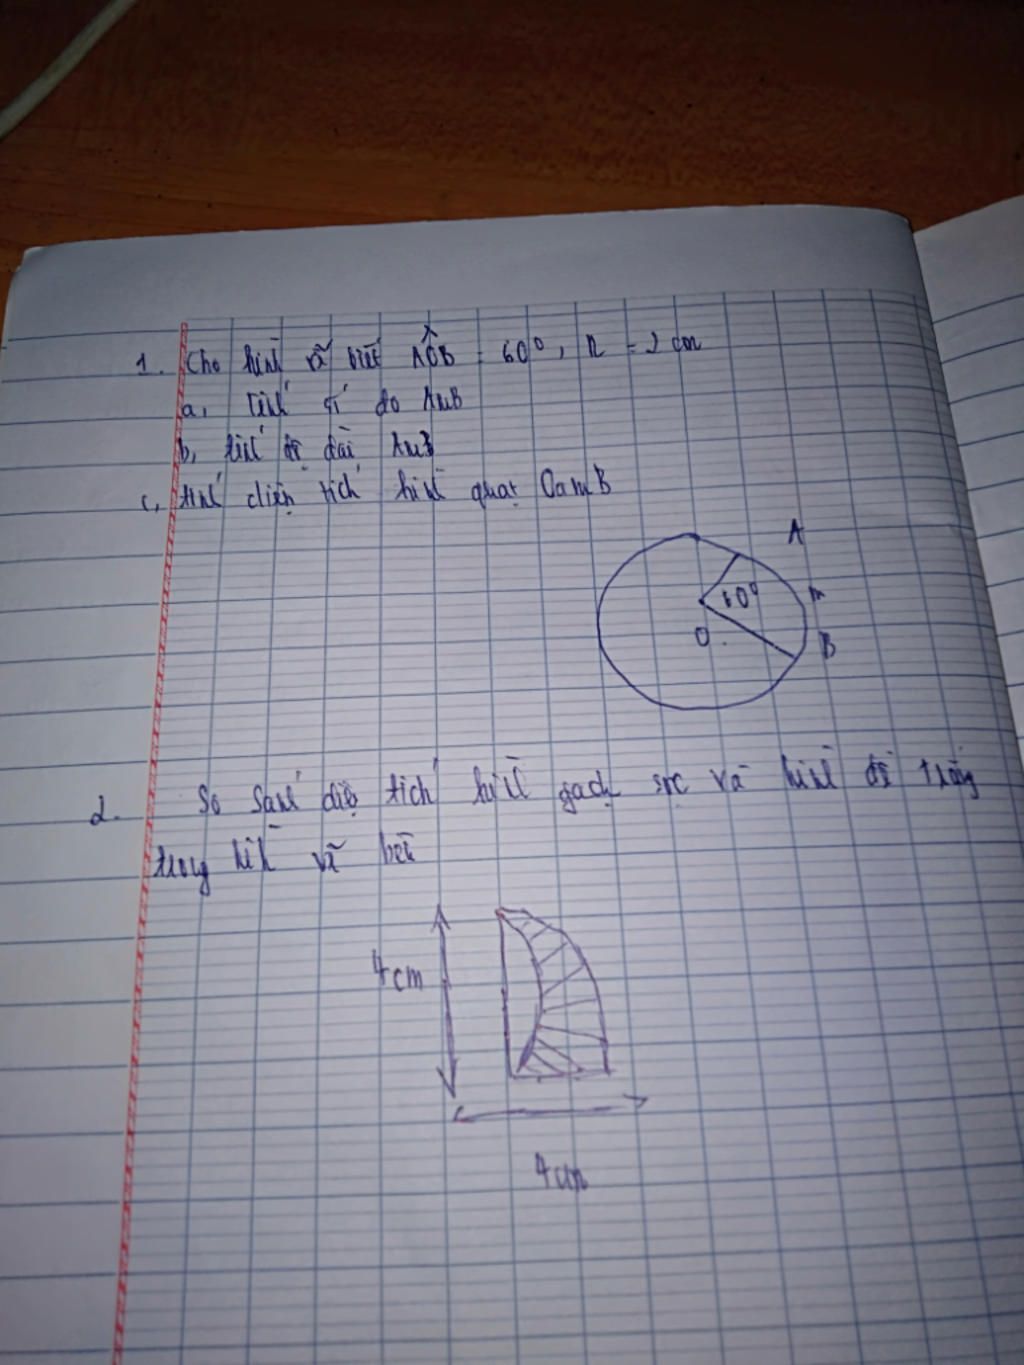 1. Cho hình vẽ biết AÔB = 60°, R = 2 cm
a, Tính số đo AmB
b, tính độ dài AmB
c, tính diện tích hình quạt OamB
A
60°
m
O
B
2. So sánh diện tích hình gạch sọc và hình để trắng
trong hình vẽ bên
4cm
4cm